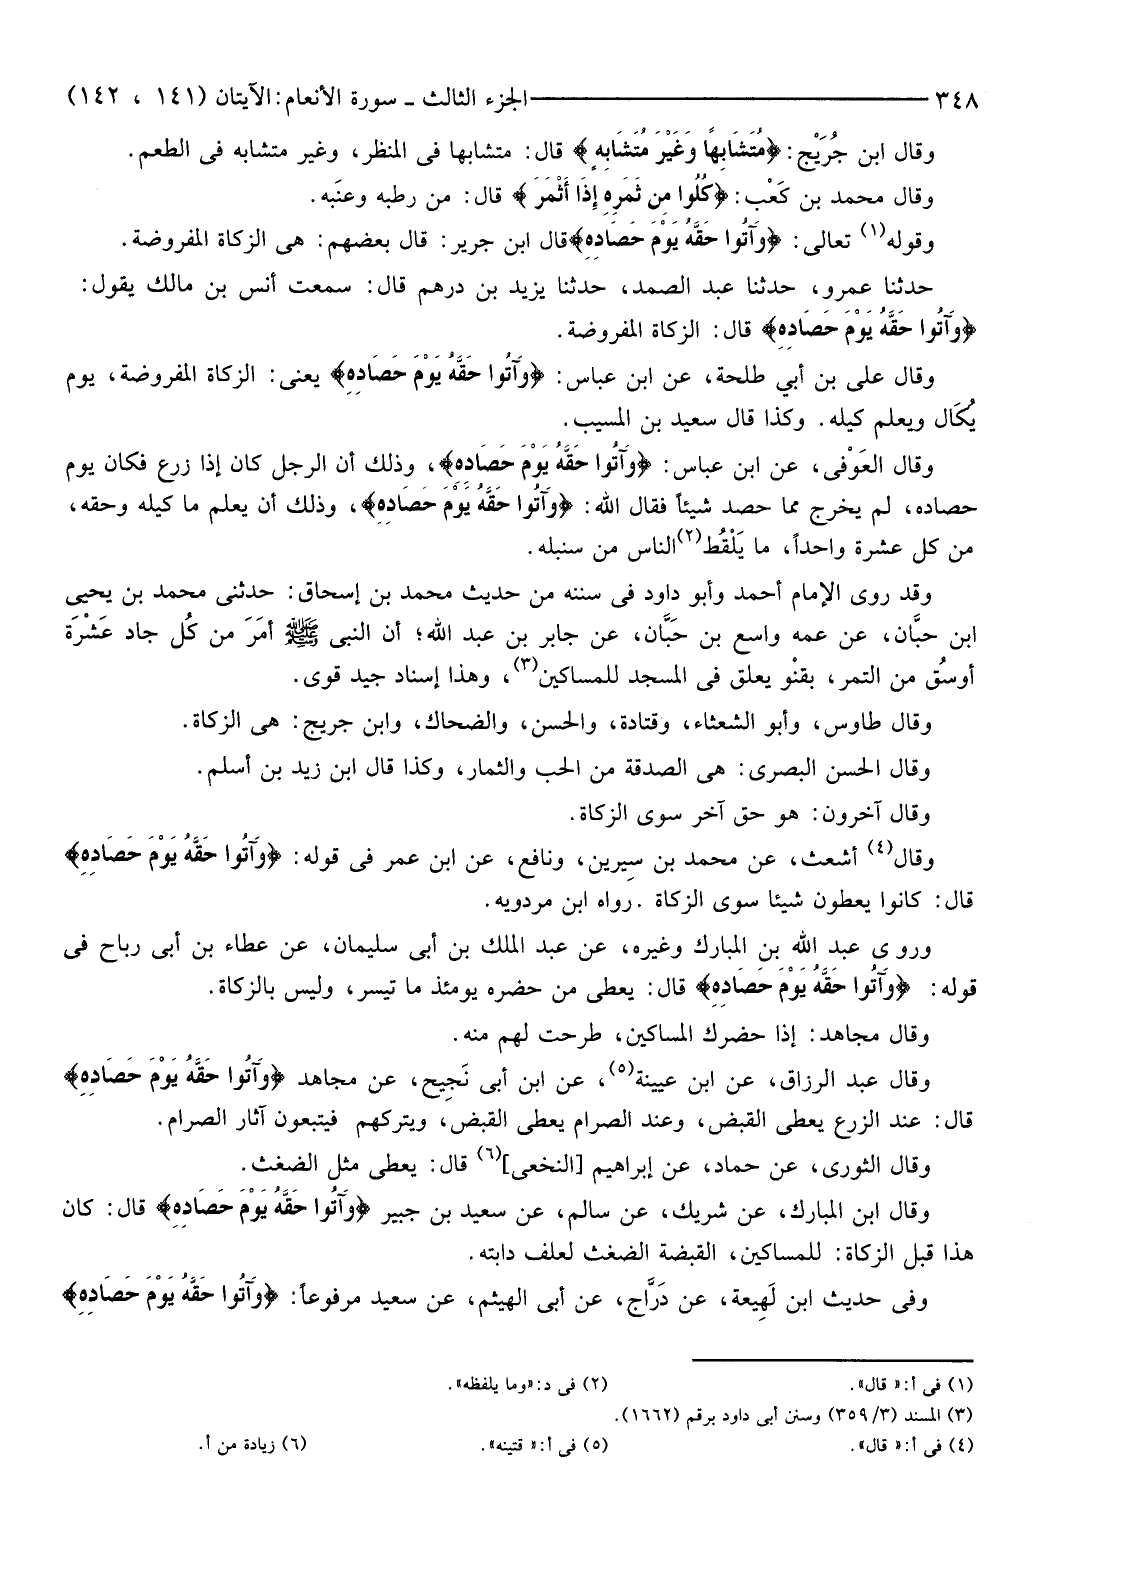 ٣٤٨ ـــــــــــ الجزء الثالث ـ سورة الأنعام: الآيتان (١٤١ ، ١٤٢)
وقال ابن جُرَيْج: ﴿مُتَشَابِهاً وَغَيْرَ مُتَشَابِهٍ﴾ قال: متشابها فى المنظر، وغير متشابه فى الطعم.
وقال محمد بن كَعْب: ﴿كُلُوا مِن ثَمَرِهِ إِذَا أَثْمَرَ﴾ قال: من رطبه وعنَبه.
وقوله(١) تعالى: ﴿وَآتُوا حَقَّهُ يَوْمَ حَصَادِهِ﴾قال ابن جرير: قال بعضهم: هى الزكاة المفروضة.
حدثنا عمرو، حدثنا عبد الصمد، حدثنا يزيد بن درهم قال: سمعت أنس بن مالك يقول:
﴿وَآتُوا حَقَّهُ يَوْمَ حَصَادِهِ﴾ قال: الزكاة المفروضة.
وقال على بن أبي طلحة، عن ابن عباس: ﴿وَآتُوا حَقَّهُ يَوْمَ حَصَادِهِ﴾ يعنى: الزكاة المفروضة، يوم
يُكَال ويعلم كيله. وكذا قال سعيد بن المسيب.
وقال العَوْفى، عن ابن عباس: ﴿وَآتُوا حَقَّهُ يَوْمَ حَصَادِهِ﴾، وذلك أن الرجل كان إذا زرع فكان يوم
حصاده، لم يخرج مما حصد شيئاً فقال الله: ﴿وَآتُوا حَقَّهُ يَوْمَ حَصَادِهِ﴾، وذلك أن يعلم ما كيله وحقه،
من كل عشرة واحداً، ما يَلْقُط(٢)الناس من سنبله.
وقد روى الإمام أحمد وأبو داود فى سننه من حديث محمد بن إسحاق: حدثنى محمد بن يحيى
ابن حبَّان، عن عمه واسع بن حَبَّان، عن جابر بن عبد الله؛ أن النبى ﷺ أمَرَ من كُل جاد عَشْرَة
أوسُق من التمر، بقنْو يعلق فى المسجد للمساكين(٣)، وهذا إسناد جيد قوى.
وقال طاوس، وأبو الشعثاء، وقتادة، والحسن، والضحاك، وابن جريج: هى الزكاة.
وقال الحسن البصرى: هى الصدقة من الحب والثمار، وكذا قال ابن زيد بن أسلم.
وقال آخرون: هو حق آخر سوى الزكاة.
وقال(٤) أشعث، عن محمد بن سِيرين، ونافع، عن ابن عمر فى قوله: ﴿وَآتُوا حَقَّهُ يَوْمَ حَصَادِهِ﴾
قال: كانوا يعطون شيئا سوى الزكاة .رواه ابن مردويه.
وروى عبد الله بن المبارك وغيره، عن عبد الملك بن أبى سليمان، عن عطاء بن أبى رباح فى
قوله: ﴿وَآتُوا حَقَّهُ يَوْمَ حَصَادِهِ﴾ قال: يعطى من حضره يومئذ ما تيسر، وليس بالزكاة.
وقال مجاهد: إذا حضرك المساكين، طرحت لهم منه.
وقال عبد الرزاق، عن ابن عيينة(٥)، عن ابن أبى نَجِيح، عن مجاهد ﴿وَآتُوا حَقَّهُ يَوْمَ حَصَادِهِ﴾
قال: عند الزرع يعطى القبض، وعند الصرام يعطى القبض، ويتركهم فيتبعون آثار الصرام.
وقال الثورى، عن حماد، عن إبراهيم [النخعى](٦) قال: يعطى مثل الضغث.
وقال ابن المبارك، عن شريك، عن سالم، عن سعيد بن جبير ﴿وَآتُوا حَقَّهُ يَوْمَ حَصَادِهِ﴾ قال: كان
هذا قبل الزكاة: للمساكين، القبضة الضغث لعلف دابته.
وفى حديث ابن لَهِيعة، عن دَرَّاج، عن أبى الهيثم، عن سعيد مرفوعاً: ﴿وَآتُوا حَقَّهُ يَوْمَ حَصَادِهِ﴾
(١) فى أ: « قال». (٢) فى د: «وما يلفظه».
(٣) المسند (٣/ ٣٥٩) وسنن أبى داود برقم (١٦٦٢).
(٤) فى أ: « قال». (٥) فى أ: « قتينه». (٦) زيادة من أ.